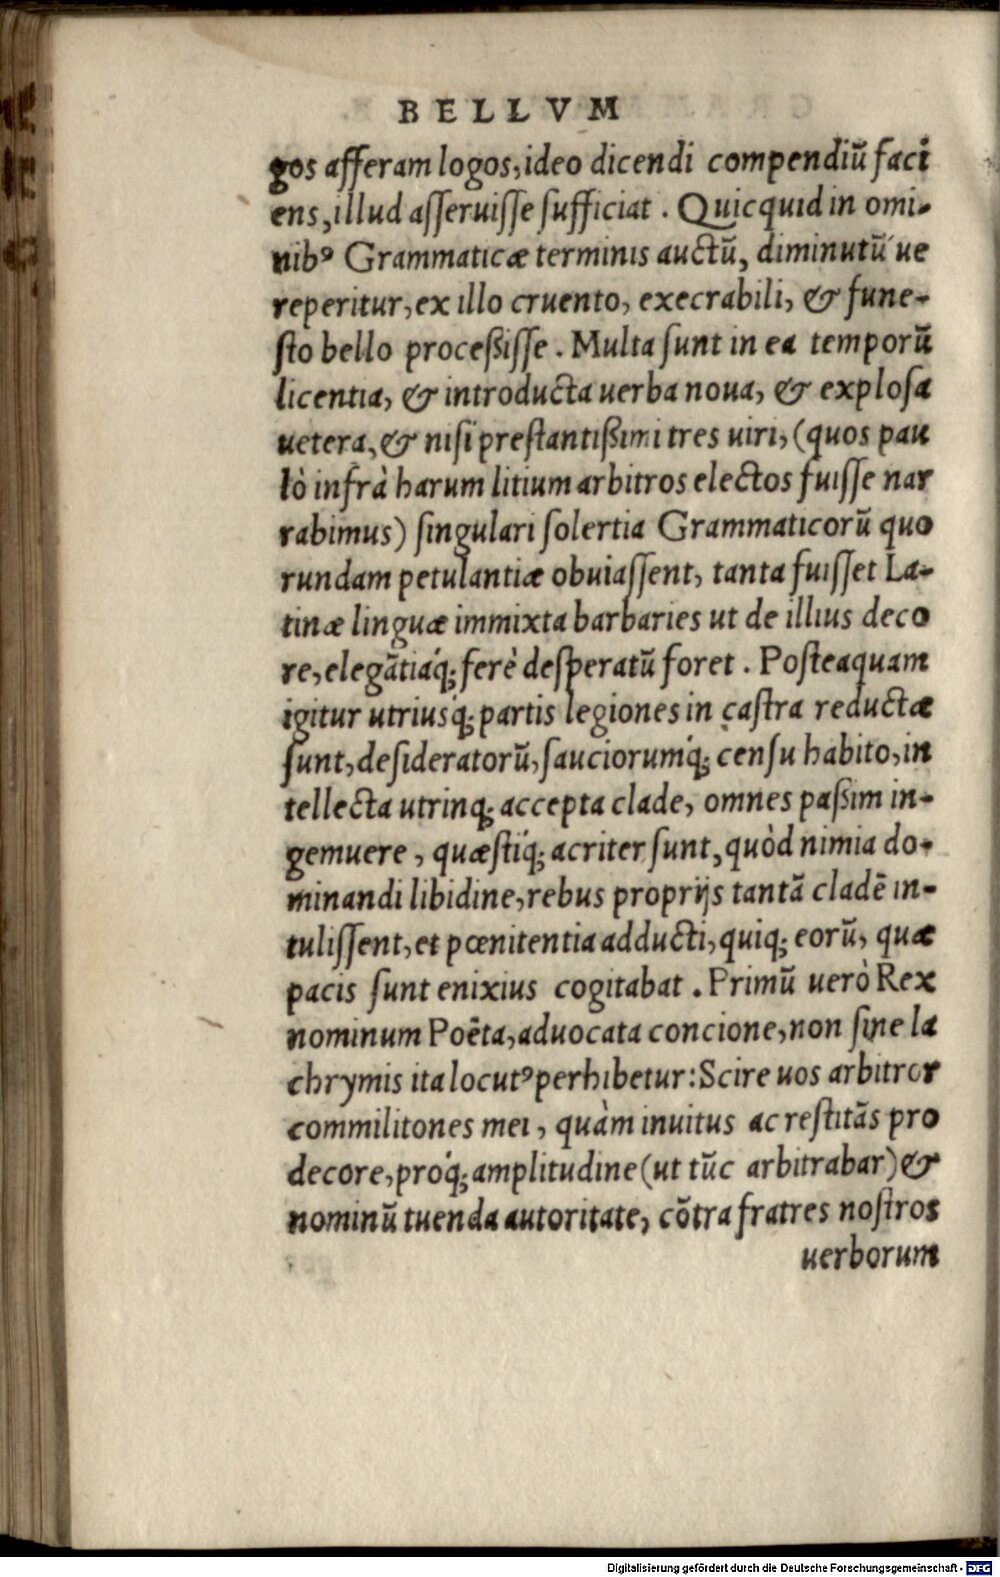 BELLVM
gos afferam logos, ideo dicendi compendiū faci
ens, illud asseruisse sufficiat. Quicquid in omi-
nibꝰ Grammaticæ terminis auctū, diminutū ue
reperitur, ex illo cruento, execrabili, & fune-
sto bello proceßisse. Multa sunt in ea temporū
licentia, & introducta uerba noua, & explosa
uetera, & nisi prestantißimi tres uiri, (quos pau
lò infrà harum litium arbitros electos fuisse nar
rabimus) singulari solertia Grammaticorū quo
rundam petulantiæ obuiassent, tanta fuisset La-
tinæ linguæ immixta barbaries ut de illius deco
re, elegātiáq; ferè desperatū foret. Posteaquam
igitur utriusq́; partis legiones in castra reductæ
sunt, desideratorū, sauciorumq́; censu habito, in
tellecta utrinq; accepta clade, omnes paßim in-
gemuere, quæstiq́; acriter sunt, quòd nimia do-
minandi libidine, rebus proprijs tantā cladē in-
tulissent, et pœnitentia adducti, quiq; eorū, quæ
pacis sunt enixius cogitabat. Primū uerò Rex
nominum Poëta, aduocata concione, non sine la
chrymis ita locutꝰ perhibetur: Scire uos arbitror
commilitones mei, quàm inuitus ac restitās pro
decore, proq́; amplitudine (ut tūc arbitrabar) &
nominū tuenda autoritate, cōtra fratres nostros
uerborum
Digitalisierung gefördert durch die Deutsche Forschungsgemeinschaft - DFG